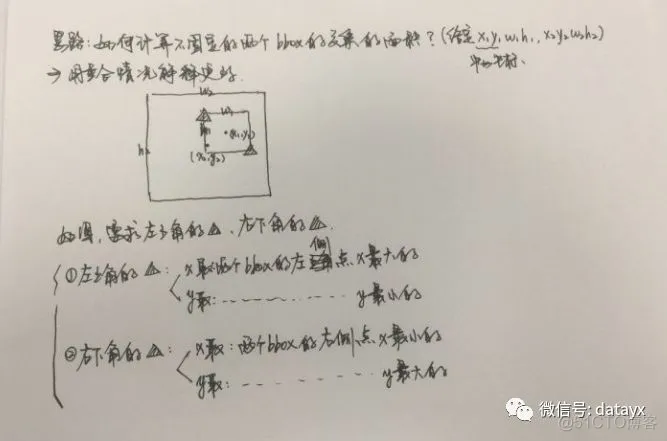 思路:如何计算不固定的两个bbox的交集的面积?(给定x₁y₁w₁h₁,x₂y₂w₂h₂)
中心坐标.
→ 用重合情况解释更好.
w₂
w₁
h₂
h₁
(x₁,y₁)
(x₂,y₂)
如图,要求左上角的△、右下角的△.
①左上角的△: x取:两个bbox的左侧点x最大的
y取: - - - - - - - - y最小的
②右下角的△: x取:两个bbox的右侧点x最小的
y取: - - - - - - - - y最大的
微信号: datayx
@51CTO博客